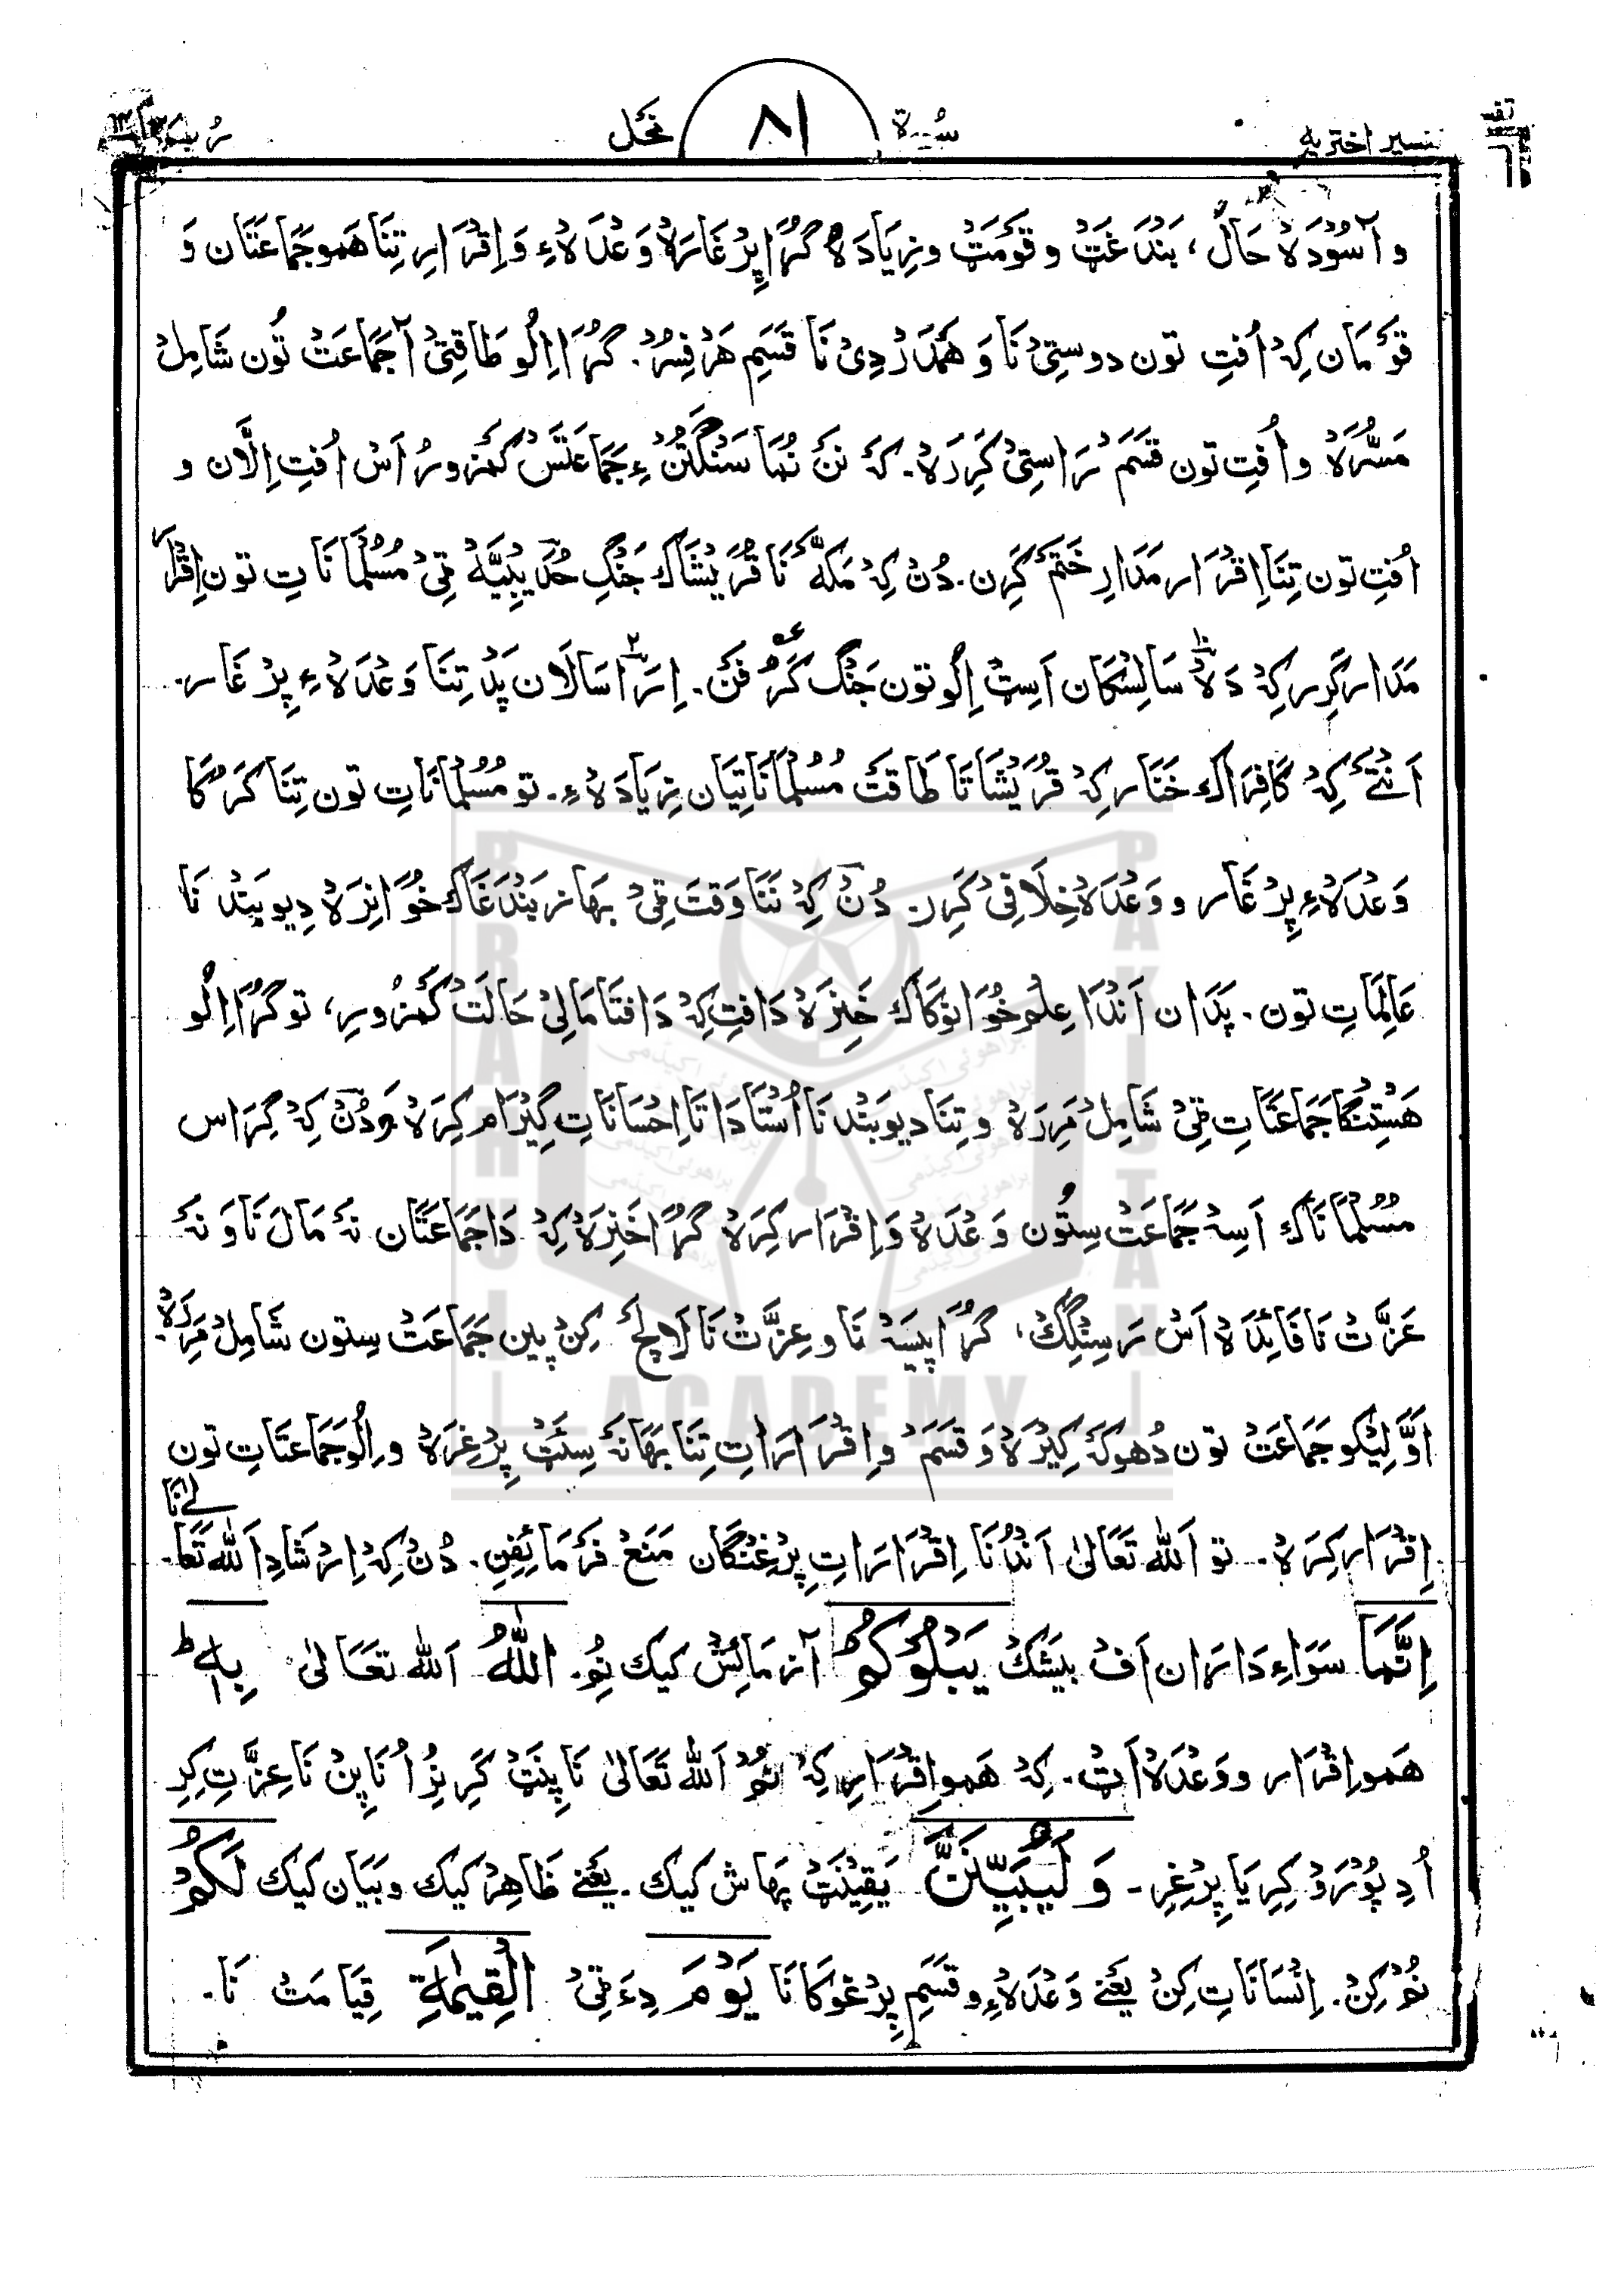 تفسیر اختریہ سُورۃ ٨١ نَحَل
و آسُوْدَہْ حَالْ، بَنْدَغَتْ و قَومَتْ و زِیَادَہْ گُڑَا پِرْغَارَہْ وَعْدَہْ ءِ وَ اِقْرَارِ تِنَا ھَمو جَمَاعَتَان وَ
قَوْمَان کِہْ اُفتِ تون دوستِیْ نَا وَ ھَمْدَرْدِیْ نَا قَسَمِ ھَرْفِسُرْ. گُڑَا اِلُو طَاقتِیْ آ جَمَاعَتْ تُون شَامِلْ
مَسُّرَہْ و اُفتِ تون قَسَمْ رَاسْتِیْ کَرِرَہْ. کہَ نَنْ نُمَا سَنْگَتُنْ ءِ جَمَاعَتَسْ کَمْزورُ اَسْ اُفتِ اِلَّان و
اُفتِ تون تِنَا اِقْرَار مَدَارِ خَتْم کَرِن. دُنْ کِہْ مَکَّہْ نَا قُرَیْشَاکْ جَنْگِ حُدَیْبِیَّہْ تِیْ مُسُلْمَانَاتِ تون اِقْرَار
مَدَار کَرِر کِہْ دَہْ ١٠ سَالِسْکَان اَسِتْ اِلُو تون جَنْگ کَرَّ فَنْ. اِرَا ٢ سَالَان پَدْ تِنَا وَعْدَہْ ءِ پِرْغَار.
اَنْتَےْ کِہْ کَافِرَاکْ خَنَار کِہْ قُرَیْشَاتَا طَاقَتْ مُسُلْمَانَاتِیَان زِیَادَہْ ءِ. تو مُسُلْمَانَاتِ تون تِنَا کَرُکَا
وَعْدَہْ ءِ پِرْغَار و وَعْدَہْ خِلَافِیْ کَرِر دُنْ کِہْ نَنَا وَقتَ تِیْ بَھَاز بَنْدَغَاکْ خُوَانِرَہْ دِیوبَنْدْ نَا
عَالِمَاتِ تون. پَدَان اَنْدَا عِلْم خُوَانوکَاکْ خَنِرَہْ دَافتِ کِہْ دَافتَا مَالِیْ حَالَتْ کَمْزورِ، تو گُڑَا اِلُو
ھَسْتِنْگَا جَمَاعَتَاتِ تِیْ شَامِلْ مَرِرَہْ و تِنَا دیوبَنْد نَا اُسْتَادَاتَا اِحْسَانَاتِ گِیْرَام کِرَہْ وَ دُنْ کِہْ گِرَاس
مُسُلْمَانَاکْ اَسِہْ جَمَاعَتْ سِتُون وَعْدَہْ وَ اِقْرَار کِرَہْ گُڑَا خَنِرَہْ کِہْ دَا جَمَاعَتَان نَہْ مَالَ نَا وَ نَہْ
عَزَّتْ نَا فَائِدَہْ اَسْ رَسِنْگِکْ، گُڑَا پیسَہْ نَا و عِزَّتْ نَا لَالِچْ کِنْ پِین جَمَاعَتْ سِتون شَامِلْ مَرِرَہْ.
اَوَّلِیْکو جَمَاعَتْ تون دُھوکَہْ کِیْرَہْ وَ قَسَمْ و اِقْرَارَاتِ تِنَا بَھَانَہْ سِئَتْ پِرْغِرَہْ و اِلُو جَمَاعتَاتِ تون
اِقْرَار کِرَہْ. تو اَللہ تَعَالیٰ اَنْدُنَا اِقْرَارَاتِ پِرْغِنْگَان مَنَعْ فَرْمَائِفِنْ. دُنْ کِہْ اِرْشَادِ اَللہ تَعَالےٰ نَا
اِنَّمَا سَوَاءِ دَارَان اَفْ بیشَکْ یَبْلُوْکُمُ آزمَائِشْ کیک نُمِ. اللّٰہُ اَللہ تَعَالیٰ بِہٖ ط
ھَمو اِقْرَار و وَعْدَہْ اَتْ. کِہْ ھَمو اِقْرَارِ کِہْ نُمْ اَللہ تَعَالیٰ نَا پِنَتْ کَرِیْرْ اُنَا پِنْ نَا عِزَّتِ کِرِ
اُدِ پُوْرَوْ کِرِ یَا پِرْغِرِ. وَ لَیُبَیِّنَنَّ یَقِیْنَتْ پَھَاش کیک. یَعْنےْ ظَاھِرْ کیک و بَیَان کیک لَکُمْ
نُمْ کِنْ. اِنْسَانَاتِ کِنْ یَعْنےْ وَعْدَہْ ءِ و قَسَمِ پِرْغوکَانَا یَوْمَ دِےَ تِیْ الْقِیٰمَۃِ قِیَامَتْ نَا.
BRAHUI ACADEMY PAKISTAN
براھوئی اکیڈمی